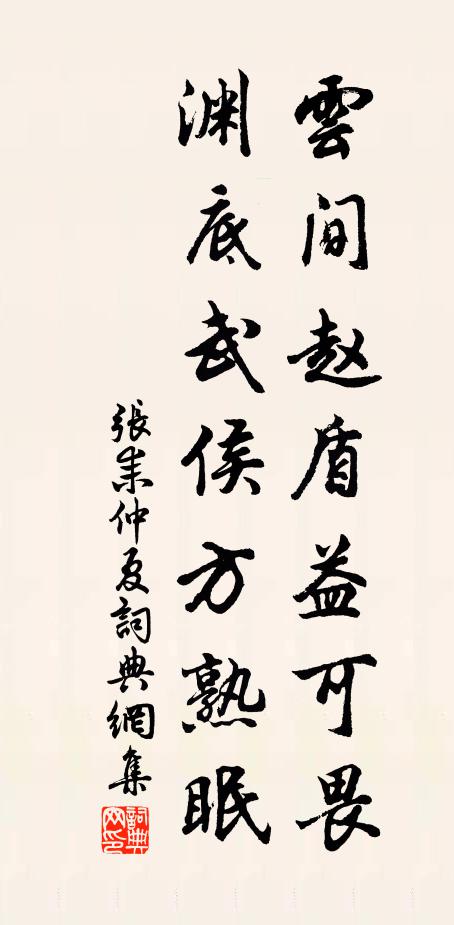 雲間赵盾益可畏
渊底武侯方熟眠
張耒仲夏詞典網集
詞典網印